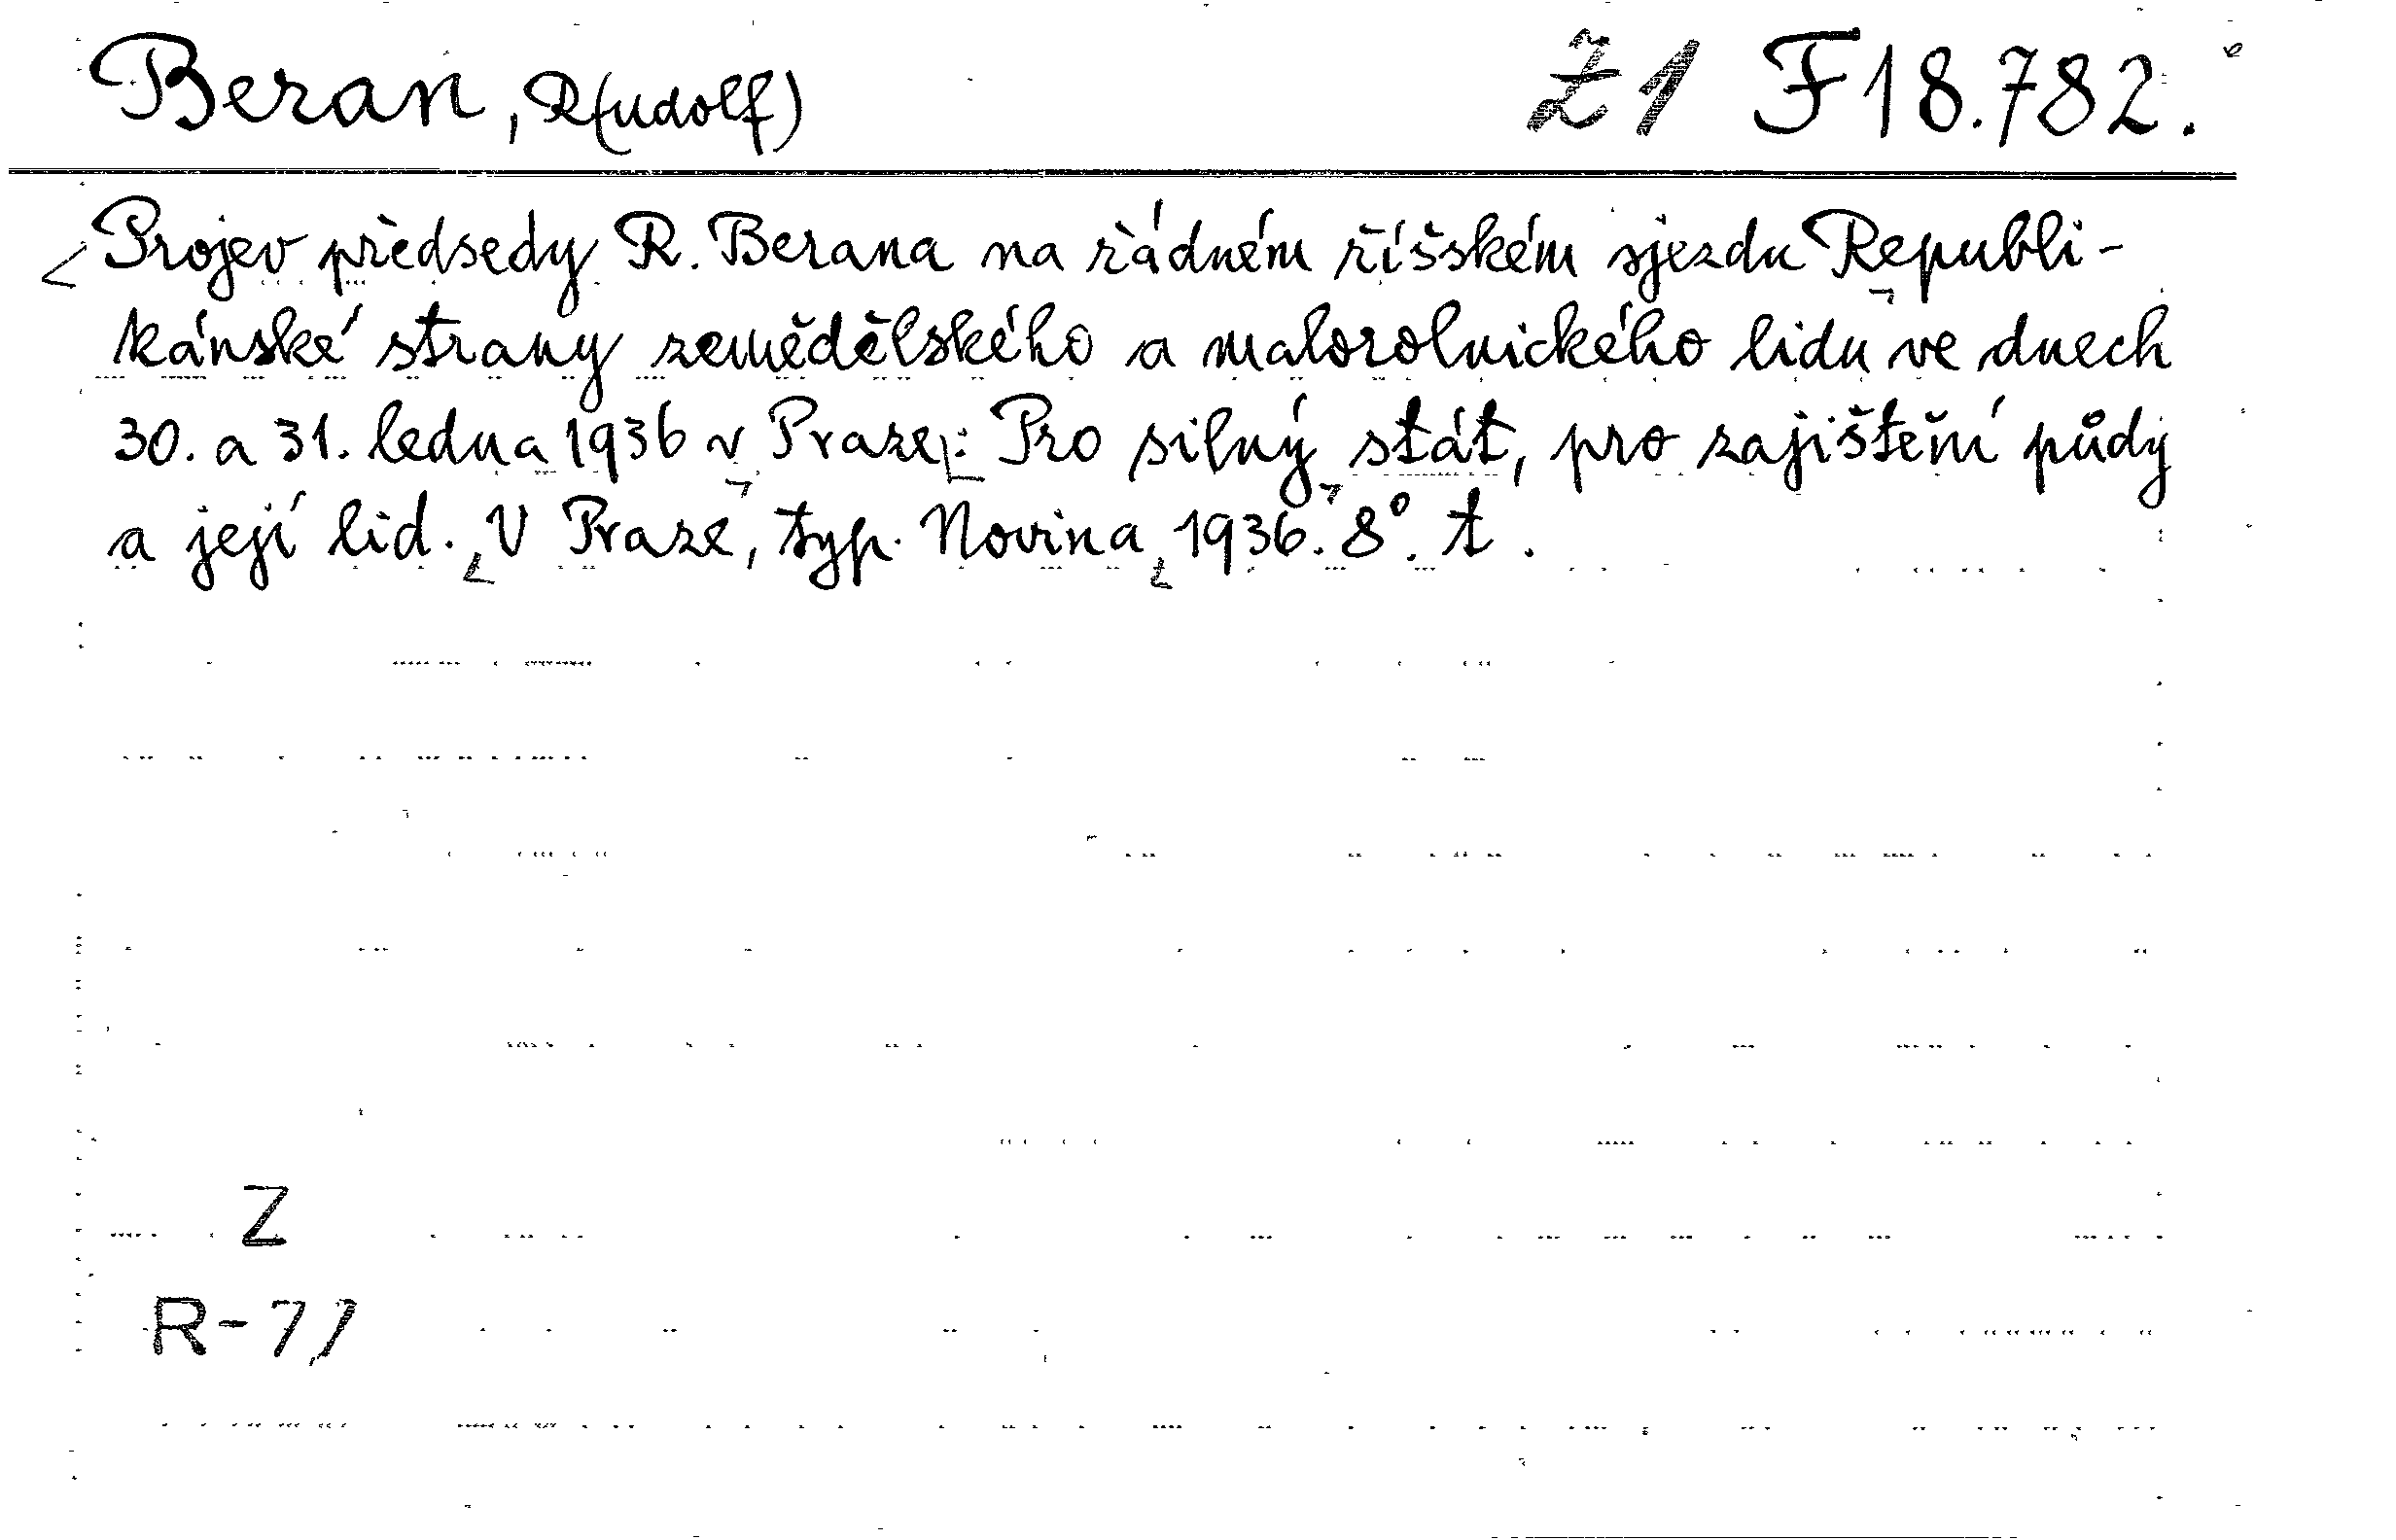 Beran, R(udolf) Ž1 F18.782.
Projev předsedy R. Berana na řádném říšském sjezdu Republi-
kánské strany zemědělského a malorolnického lidu ve dnech
30. a 31. ledna 1936 v Praze: Pro silný stát, pro zajištění půdy
a její lid. V Praze, typ. Novina 1936. 8°. t.
Z
R-71